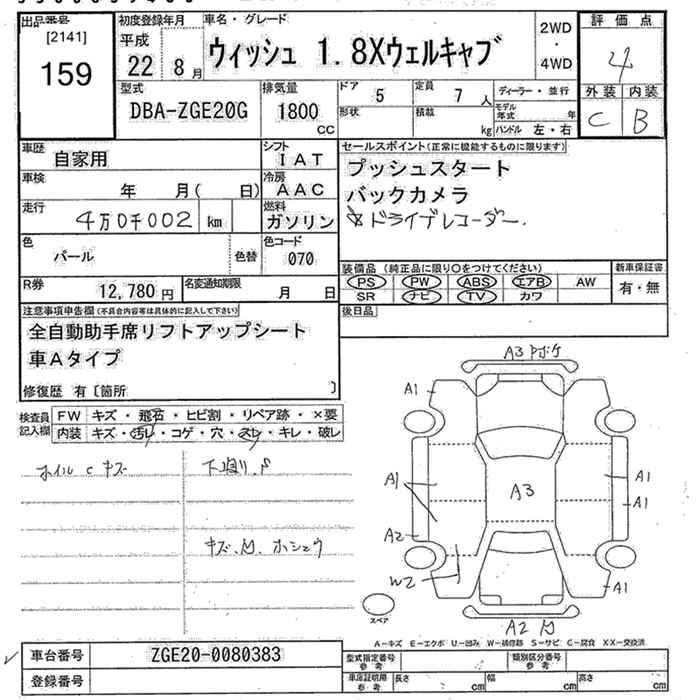 出品番号
[2141]
159
初度登録年月
平成
22年 8月
車名・グレード
ウィッシュ 1.8Xウェルキャブ
2WD
・
4WD
評価点
4
外装 内装
C B
型式
DBA-ZGE20G
排気量
1800
cc
ドア 5
定員 7人
ディーラー・並行
形状
積載 kg
モデル年式 年
ハンドル 左・右
車歴
自家用
シフト
IAT
車検
年 月( 日)
冷房
AAC
走行
4万0千002 km
燃料
ガソリン
色
パール
色替
色コード
070
R券
12,780円
名変通知期限
月 日
セールスポイント(正常に機能するものに限ります)
プッシュスタート
バックカメラ
ドライブレコーダー.
装備品(純正品に限り○をつけてください)
PS PW ABS エアB AW
SR ナビ TV カワ
新車保証書
有・無
後日品
注意事項申告欄(不具合内容等は具体的に記入して下さい)
全自動助手席リフトアップシート
車Aタイプ
修復歴 有〔箇所 〕
検査員
記入欄
FW キズ・飛石・ヒビ割・リペア跡・×要
内装 キズ・汚レ・コゲ・穴・スレ・キレ・破レ
ホイル C キズ
キズ.
A3
A1
A1
A3
A1
A1
A2
W2
A1
A2
スペア
A-キズ E-エクボ U-凹み W-補修跡 S-サビ C-腐食 XX-交換済
車台番号
ZGE20-0080383
登録番号
型式指定番号
参考
類別区分番号
参考
車庫証明用
参考
長さ cm
幅 cm
高さ cm